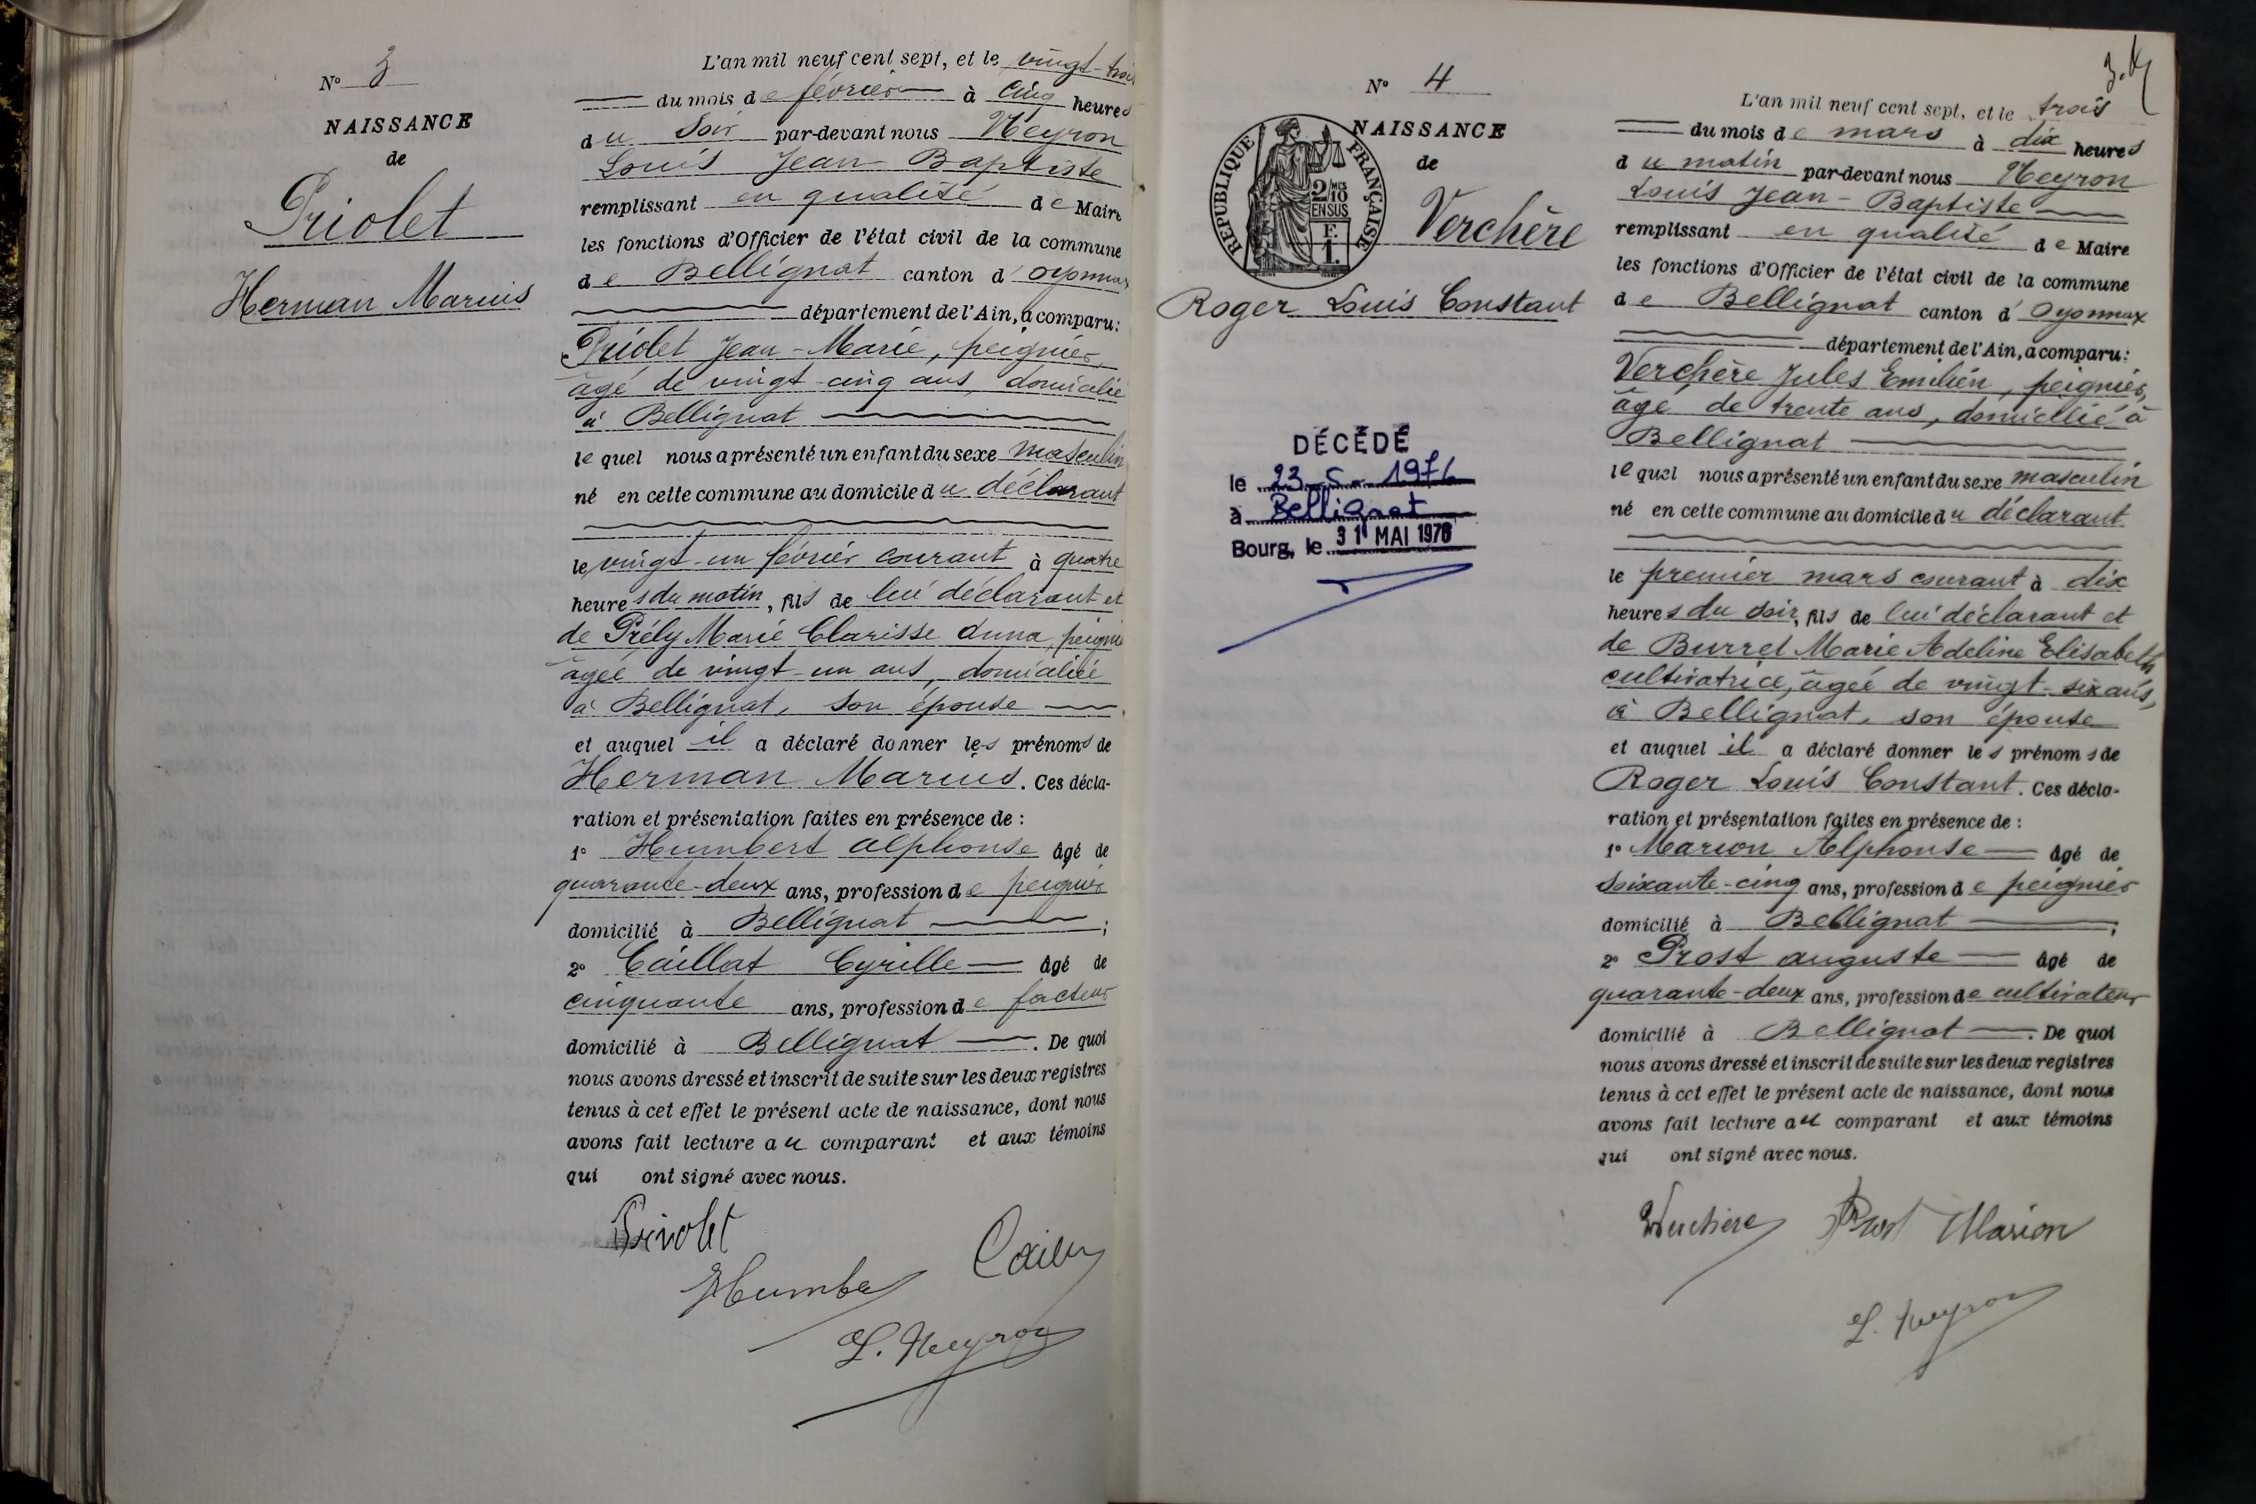 N° 3
NAISSANCE
de
Priolet
Herman Marius
L'an mil neuf cent sept, et le vingt-trois
du mois de février à cinq heures
du soir par-devant nous Neyron
Louis Jean Baptiste
remplissant en qualité de Maire
les fonctions d'Officier de l'état civil de la commune
de Bellignat canton d'Oyonnax
département de l'Ain, a comparu :
Priolet Jean-Marie, peignier,
âgé de vingt-cinq ans, domicilié
à Bellignat
lequel nous a présenté un enfant du sexe masculin
né en cette commune au domicile du déclarant
le vingt-un février courant à quatre
heures du matin, fils de lui déclarant et
de Prély Marie Clarisse Anna,
âgée de vingt-un ans, domiciliée
à Bellignat, son épouse
et auquel il a déclaré donner les prénoms de
Herman Marius. Ces décla-
ration et présentation faites en présence de :
1° Humbert Alphonse âgé de
quarante-deux ans, profession de peignier
domicilié à Bellignat ;
2° Caillat Cyrille âgé de
cinquante ans, profession de facteur
domicilié à Bellignat. De quoi
nous avons dressé et inscrit de suite sur les deux registres
tenus à cet effet le présent acte de naissance, dont nous
avons fait lecture au comparant et aux témoins
qui ont signé avec nous.
Priolet
L. Neyron
N° 4
NAISSANCE
de
RÉPUBLIQUE FRANÇAISE
2/10 MES
EN SUS
F.
1.
Verchère
Roger Louis Constant
DÉCÉDÉ
le 23-5-1976
à Bellignat
Bourg, le 31 MAI 1976
L'an mil neuf cent sept, et le trois
du mois de mars à dix heures
du matin par-devant nous Neyron
Louis Jean-Baptiste
remplissant en qualité de Maire
les fonctions d'Officier de l'état civil de la commune
de Bellignat canton d'Oyonnax
département de l'Ain, a comparu :
Verchère Jules Emilien, peignier,
âgé de trente ans, domicilié à
Bellignat
lequel nous a présenté un enfant du sexe masculin
né en cette commune au domicile du déclarant
le premier mars courant à dix
heures du soir, fils de lui déclarant et
de Burret Marie Adeline Elisabeth,
cultivatrice, âgée de vingt-six ans,
à Bellignat, son épouse
et auquel il a déclaré donner les prénoms de
Roger Louis Constant. Ces décla-
ration et présentation faites en présence de :
1° Marion Alphonse âgé de
soixante-cinq ans, profession de peignier
domicilié à Bellignat ;
2° Prost Auguste âgé de
quarante-deux ans, profession de cultivateur
domicilié à Bellignat. De quoi
nous avons dressé et inscrit de suite sur les deux registres
tenus à cet effet le présent acte de naissance, dont nous
avons fait lecture au comparant et aux témoins
qui ont signé avec nous.
Verchère Prost Marion
L. Neyron